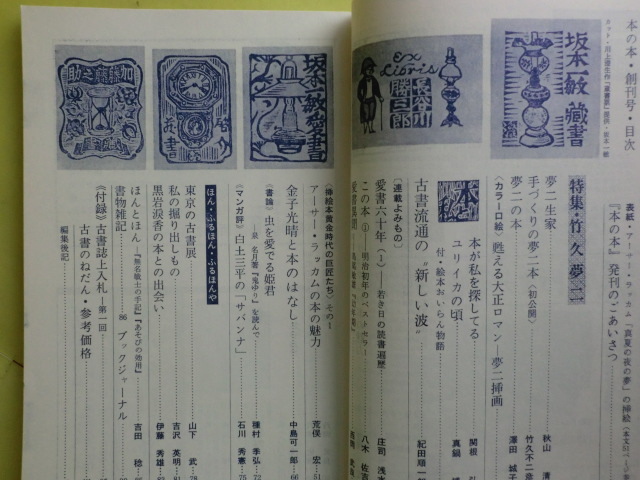 本の本・創刊号・目次
表紙・アーサー・ラッカム「真夏の夜の夢」の挿絵
『本の本』発刊のごあいさつ
特集・竹久夢二
夢二生家
秋山 清
手づくりの夢二本〈初公開〉
竹久不二彦
夢二の本
〈カラー口絵〉甦える大正ロマン―夢二挿画
本が私を探してる
関根 弘
ユリイカの頃
真鍋 博
付・絵本おいらん物語
古書流通の“新しい波”
紀田順一郎
〔連載よみもの〕
愛書六十年〈1〉―若き日の読書遍歴
庄司 浅水
この本① 明治初年のベストセラー
八木 佐吉
坂本一敏 藏書
Ex Libris
長谷川勝三郎
坂本一敏愛書
加藤之助
〈挿絵本黄金時代の巨匠たち〉その1
アーサー・ラッカムの本の魅力
荒俣 宏…51
金子光晴と本のはなし
中島可一郎…66
〈書論〉虫を愛でる姫君
―泉 名月著『鬼ゆり』を読んで
種村 季弘…72
〈マンガ評〉白土三平の「サバンナ」
石川 秀憲…75
ほん・ふるほん・ふるほんや
東京の古書展
山下 武…78
私の掘り出しもの
吉沢 英明…81
黒岩涙香の本との出会い
伊藤 秀雄…82
ほんとほん―『無名戦士の手記』『あそびの効用』
書物雑記
86 ブックジャーナル
吉田 稔
《付録》古書誌上入札―第一回
古書のねだん・参考価格
編集後記